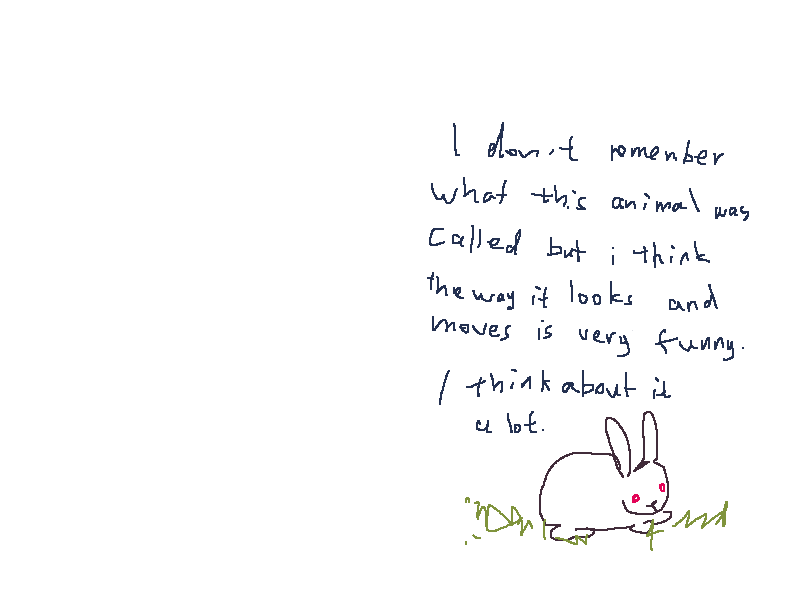 I don't remenber
what this animal was
called but i think
the way it looks and
moves is very funny.
I think about it
a lot.